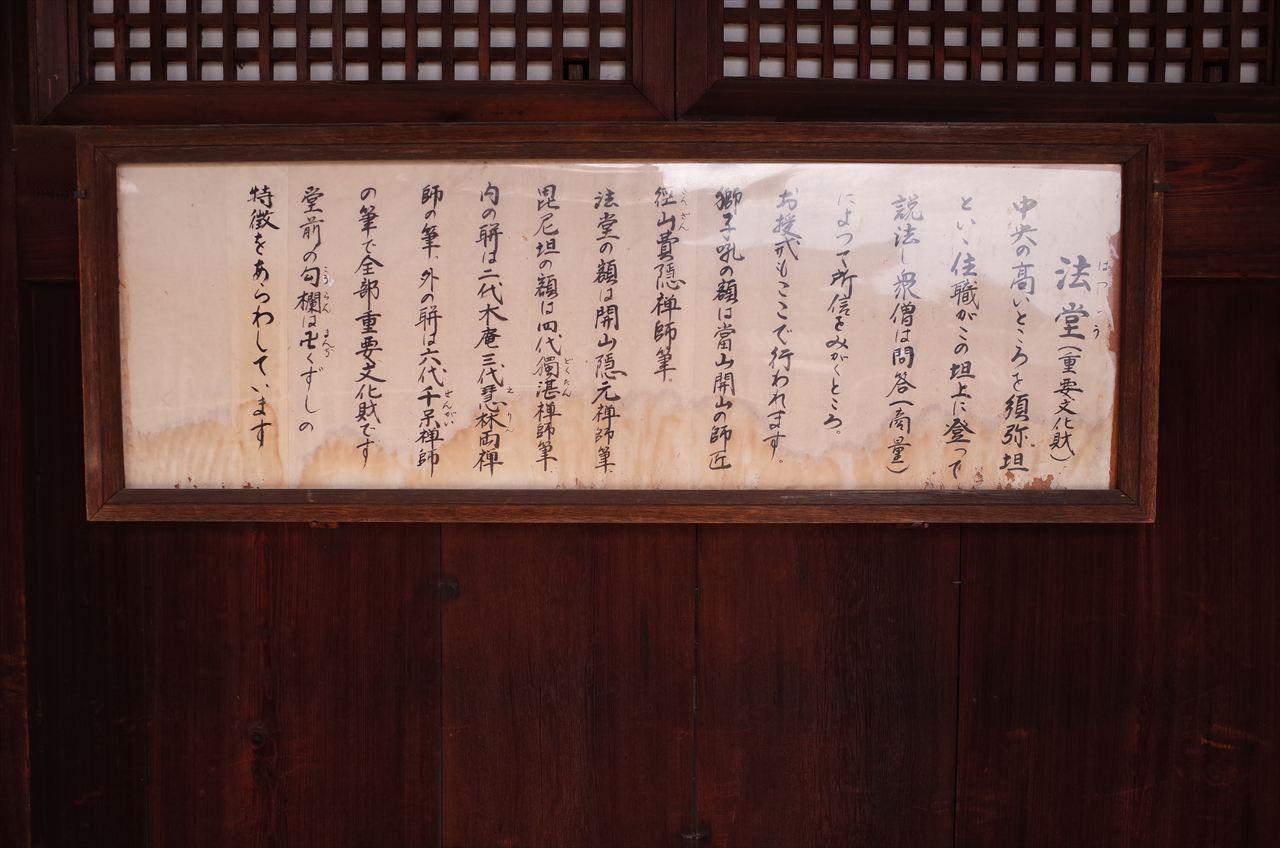 法堂(重要文化財)
はつとう
中央の高いところを須弥坦
といゝ住職がこの坦上に登って
説法し衆僧は問答(商量)
によつて所信をみがくところ。
お授戒もここで行われます。
獅子吼の額は當山開山の師匠
径山費隠禅師筆、
きんざん
法堂の額は開山隠元禅師筆、
毘尼坦の額は四代獨湛禅師筆、
どくたん
内の聨は二代木庵三代慧林両禅
えりん
師の筆、外の聨は六代千呆禅師
せんがい
の筆で全部重要文化財です
堂前の勾欄は卍くずしの
こうらん まんぢ
特徴をあらわしています